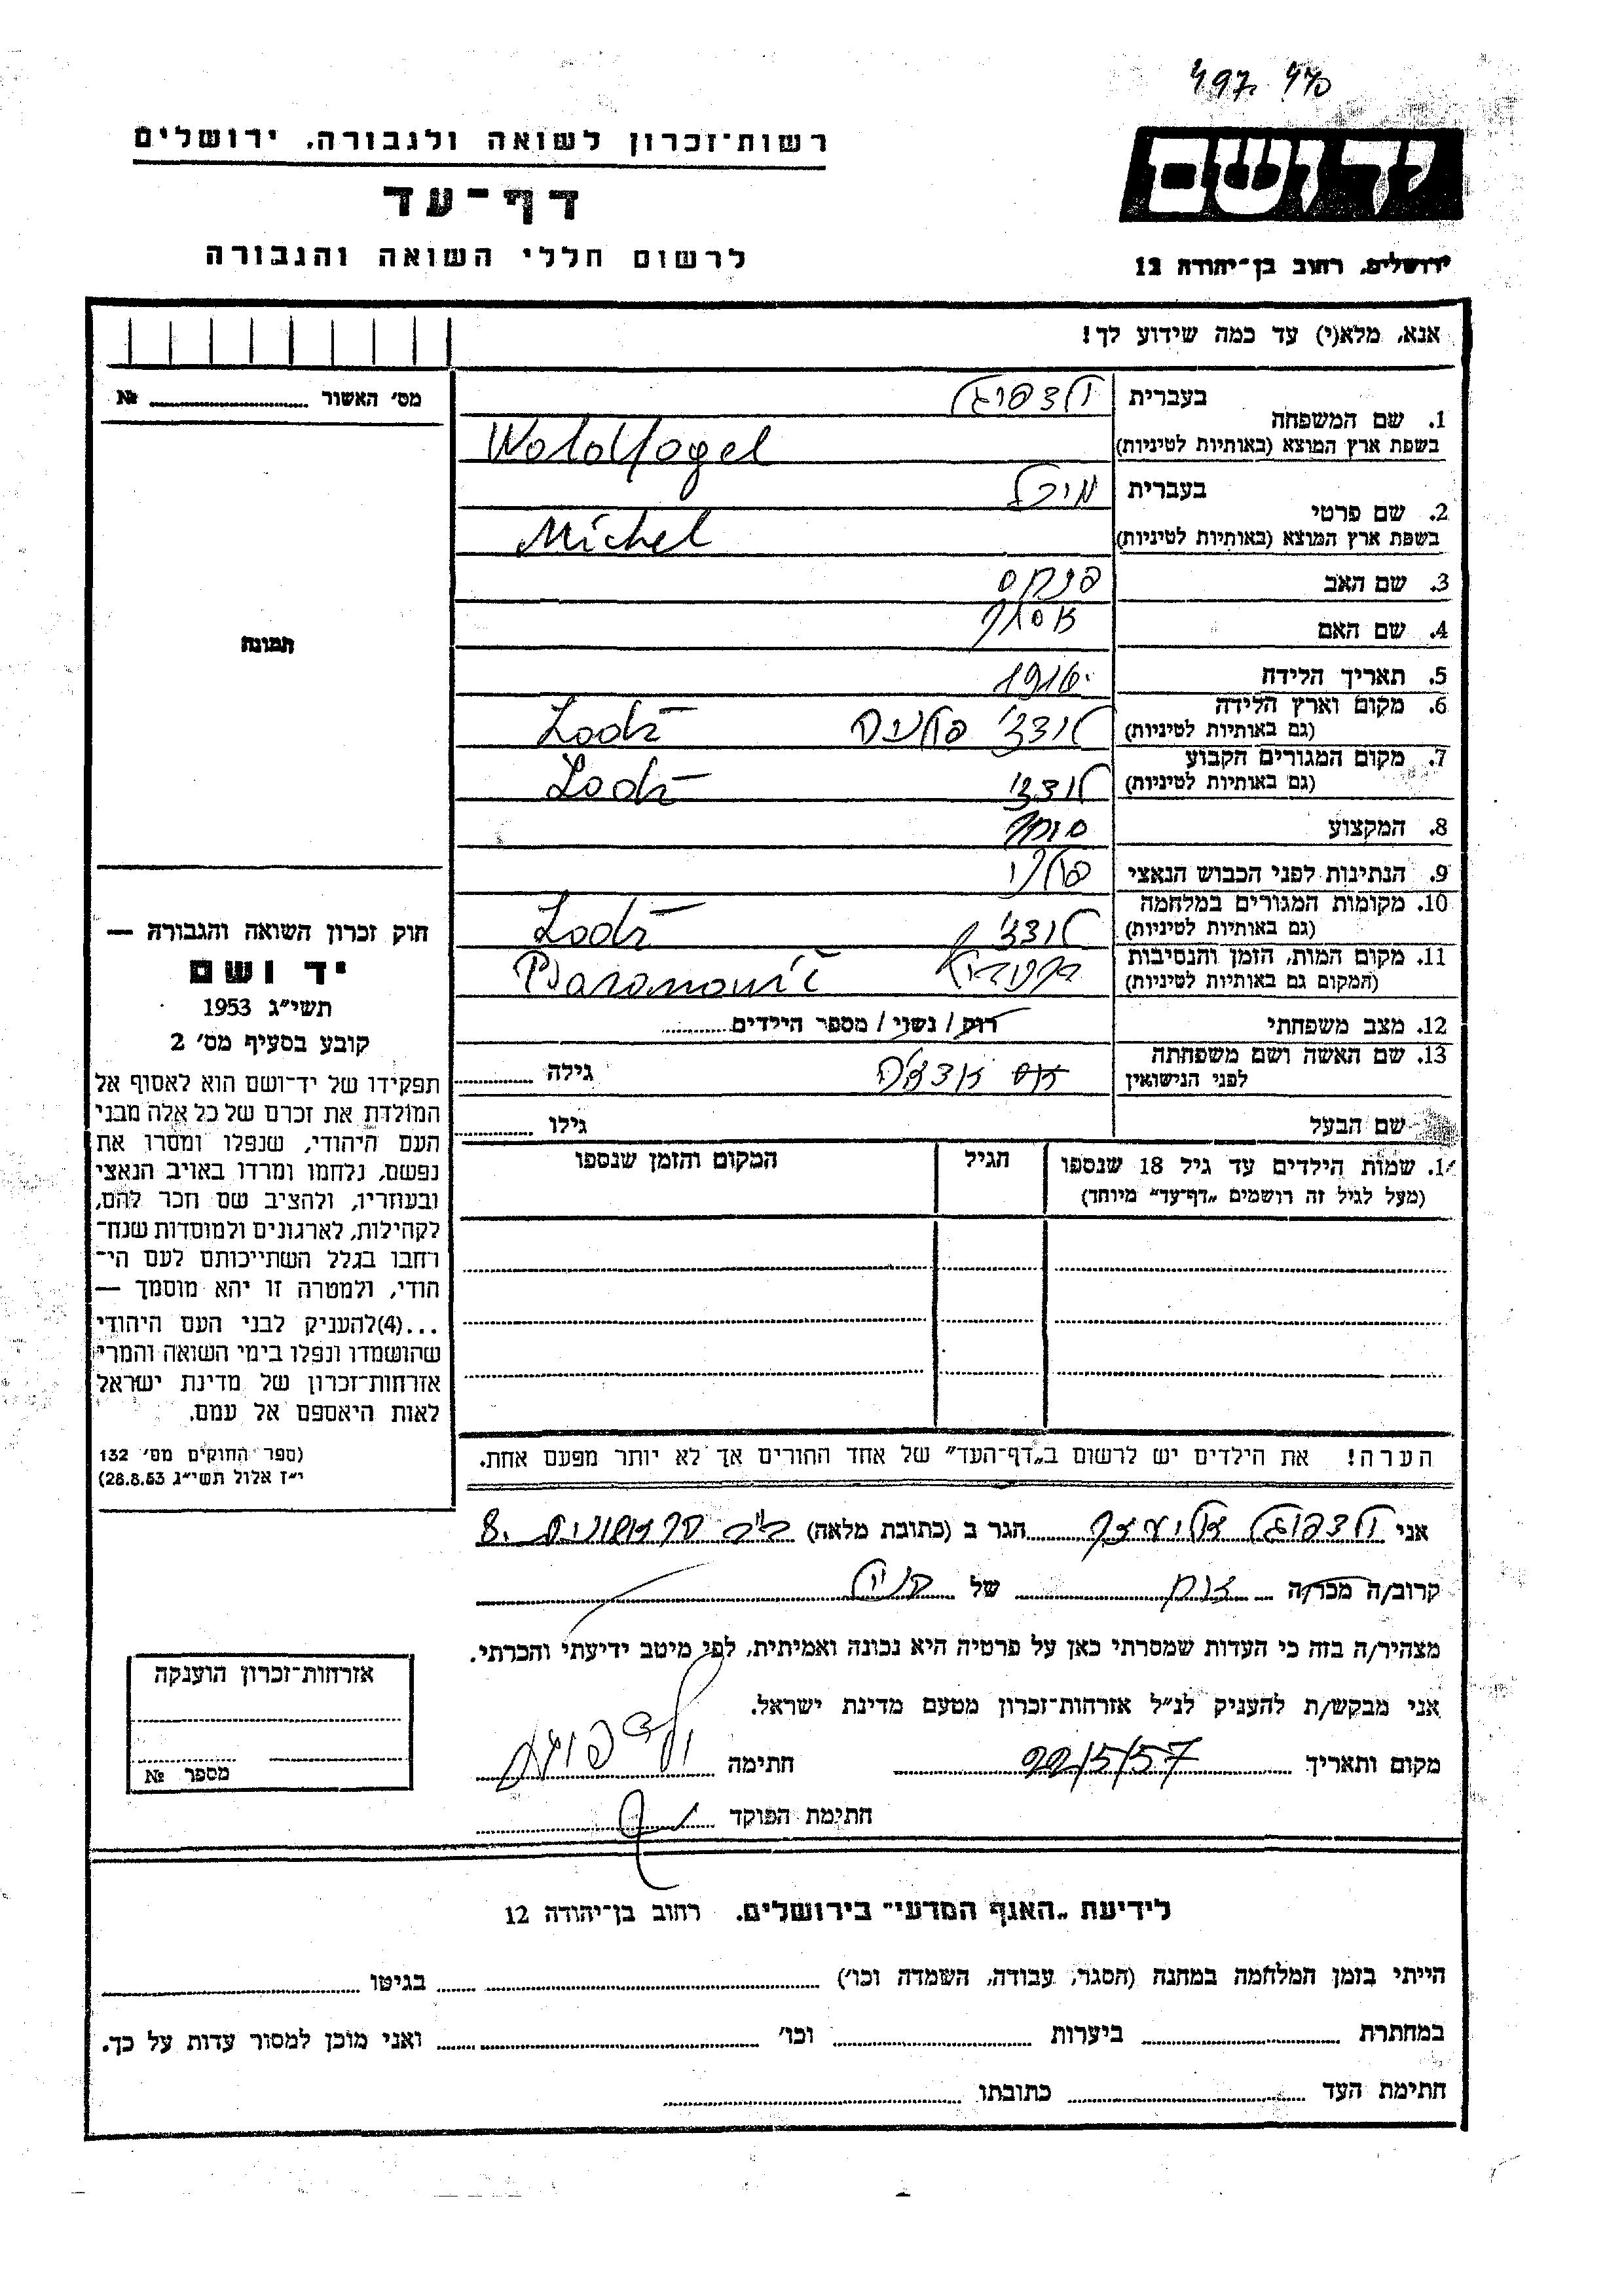 497. 470
רשות־זכרון לשואה ולגבורה, ירושלים
דף־עד
לרשום חללי השואה והגבורה
יד ושם
ירושלים, רחוב בן־יהודה 12
אנא, מלא(י) עד כמה שידוע לך!
מס' האשור № 
תמונה
1. שם המשפחה
בעברית ולדפוגל
בשפת ארץ המוצא (באותיות לטיניות) Woldfogel
2. שם פרטי
בעברית מיכל
בשפת ארץ המוצא (באותיות לטיניות) Michel
3. שם האב פנחס
4. שם האם אסתר
5. תאריך הלידה 1916
6. מקום וארץ הלידה
(גם באותיות לטיניות) לודז' פולניה Lodź
7. מקום המגורים הקבוע
(גם באותיות לטיניות) לודז' Lodź
8. המקצוע סוחר
9. הנתינות לפני הכבוש הנאצי פולני
10. מקומות המגורים במלחמה
(גם באותיות לטיניות) לודז' Lodź
11. מקום המות, הזמן והנסיבות
(המקום גם באותיות לטיניות) Baranowić
12. מצב משפחתי רוק / נשוי / מספר הילדים
13. שם האשה ושם משפחתה
לפני הנישואין גילה
שם הבעל גילו
1. שמות הילדים עד גיל 18 שנספו
(מעל לגיל זה רושמים „דף־עד" מיוחד)
הגיל
המקום והזמן שנספו
הערה! את הילדים יש לרשום ב„דף־העד" של אחד ההורים אך לא יותר מפעם אחת.
חוק זכרון השואה והגבורה —
יד ושם
תשי"ג 1953
קובע בסעיף מס' 2
תפקידו של יד־ושם הוא לאסוף אל
המולדת את זכרם של כל אלה מבני
העם היהודי, שנפלו ומסרו את
נפשם, נלחמו ומרדו באויב הנאצי
ובעוזריו, ולהציב שם וזכר להם,
לקהילות, לארגונים ולמוסדות שנח־
רבו בגלל השתייכותם לעם הי־
הודי, ולמטרה זו יהא מוסמך —
...(4)להעניק לבני העם היהודי
שהושמדו ונפלו בימי השואה והמרי
אזרחות־זכרון של מדינת ישראל
לאות היאספם אל עמם.
(ספר החוקים מס' 132
י"ז אלול תשי"ג 28.8.53)
אני ולדפוגל אליעזר הגר ב (כתובת מלאה) 8.
קרוב/ה מכר/ה אח של
מצהיר/ה בזה כי העדות שמסרתי כאן על פרטיה היא נכונה ואמיתית, לפי מיטב ידיעתי והכרתי.
אני מבקש/ת להעניק לנ"ל אזרחות־זכרון מטעם מדינת ישראל.
מקום ותאריך 22/5/57 חתימה
חתימת הפוקד
אזרחות־זכרון הוענקה
מספר №
לידיעת „האגף המדעי" בירושלים. רחוב בן־יהודה 12
הייתי בזמן המלחמה במחנה (הסגר, עבודה, השמדה וכו') בגיטו
במחתרת ביערות וכו' ואני מוכן למסור עדות על כך.
חתימת העד כתובתו